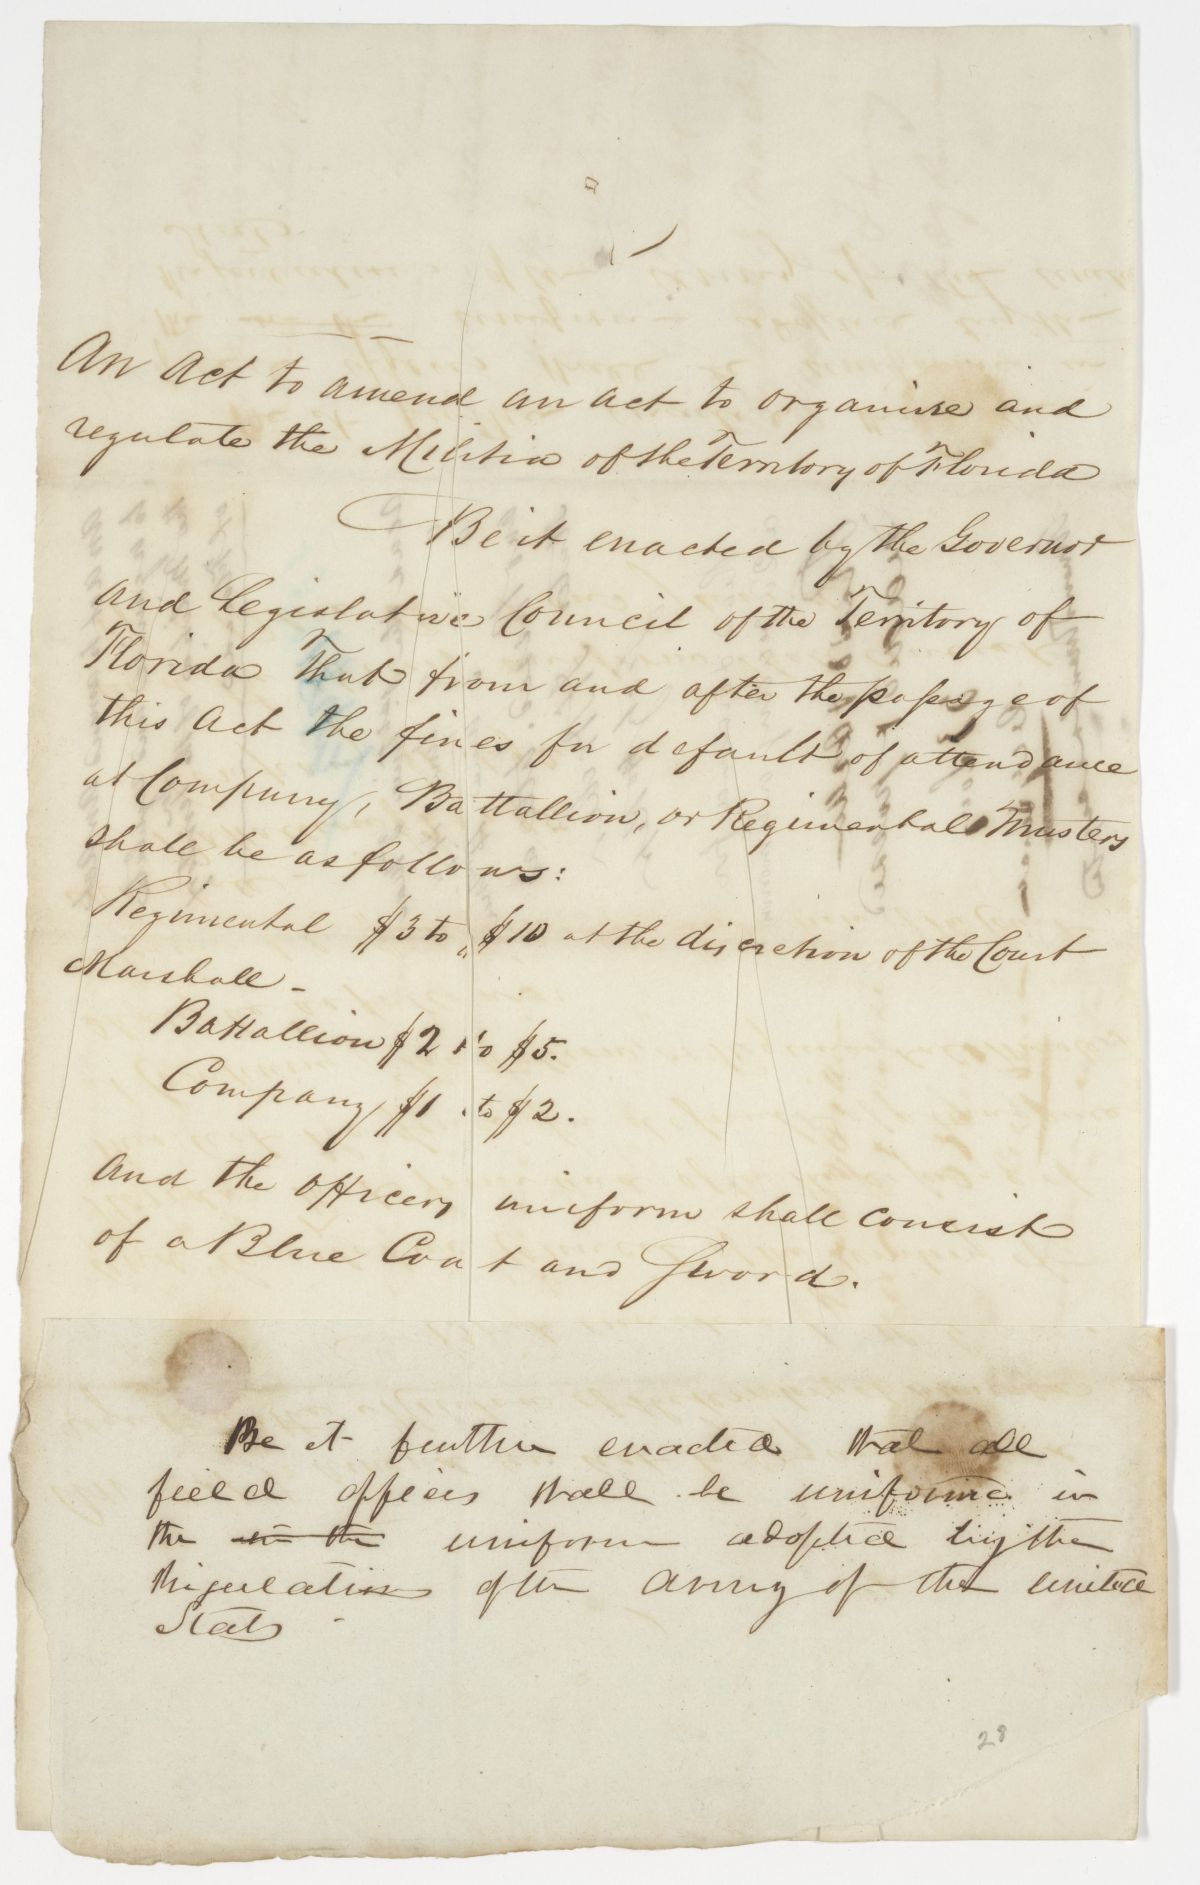 An Act to amend an act to organise and
regulate the Militia of the Territory of Florida
Be it enacted by the Governor
and Legislative Council of the Territory of
Florida That from and after the passage of
this Act the fines for default of attendance
at Company, Battallion, or Regimental Musters
shall be as follows:
Regimental $3 to $10 at the discretion of the Court
Marshall -
Battallion $2 to $5.
Company $1 to $2.
And the officers uniform shall consist
of a Blue Coat and Sword.
Be it further enacted that all
field officers shall be uniformed in
the in the uniform adopted by the
Regulations of the Army of the United
States -
28